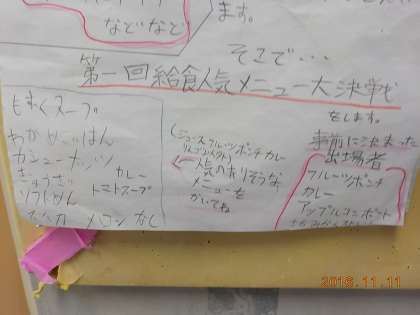 などなど
ます。
そこで・・・
第一回給食人気メニュー大決戦
をします。
もずくスープ
わかめごはん
カシューナッツ
カレー
トマトスープ
ソフトめん
メロン なし
人気のありそうな
メニューを
かいてね
事前に決まった
出場者
フルーツポンチ
カレー
アップルコンポート
2016.11.11